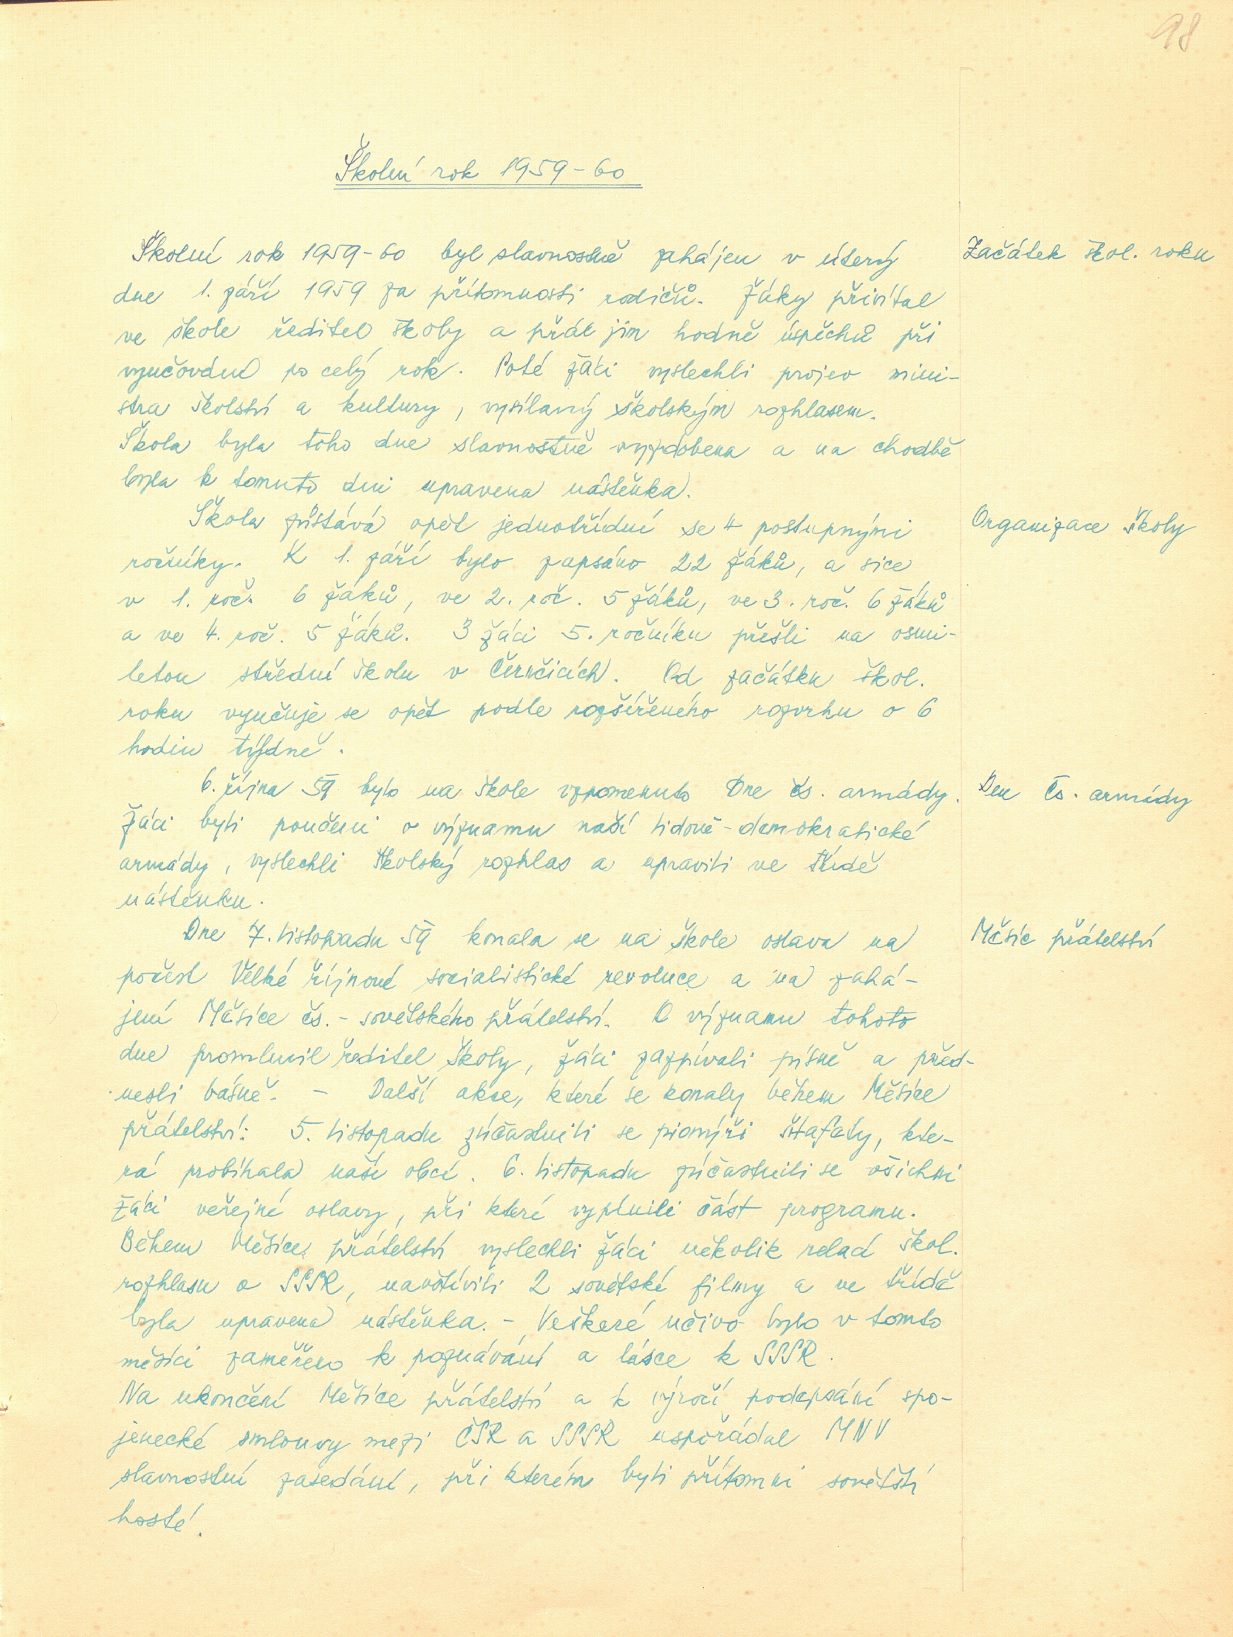 98
Školní rok 1959-60
Školní rok 1959-60 byl slavnostně zahájen v úterý
Začátek škol. roku
dne 1. září 1959 za přítomnosti rodičů. Žáky přivítal
ve škole ředitel školy a přál jim hodně úspěchů při
vyučování po celý rok. Poté žáci vyslechli projev mini-
stra školství a kultury, vysílaný školským rozhlasem.
Škola byla toho dne slavnostně vyzdobena a na chodbě
byla k tomuto dni upravena nástěnka.
Škola zůstává opět jednotřídní se 4 postupnými
Organizace školy
ročníky. K 1. září bylo zapsáno 22 žáků, a sice
v 1. roč. 6 žáků, ve 2. roč. 5 žáků, ve 3. roč. 6 žáků
a ve 4. roč. 5 žáků. 3 žáci 5. ročníku přešli na osmi-
letou střední školu v Černčicích. Od začátku škol.
roku vyučuje se opět podle rozšířeného rozvrhu o 6
hodin týdně.
6. října 59 bylo na škole vzpomenuto Dne čs. armády.
Den čs. armády
Žáci byli poučeni o významu naší lidově-demokratické
armády, vyslechli školský rozhlas a upravili ve třídě
nástěnku.
Dne 7. listopadu 59 konala se na škole oslava na
Měsíc přátelství
počest Velké říjnové socialistické revoluce a na zahá-
jení Měsíce čs.-sovětského přátelství. O významu tohoto
dne promluvil ředitel školy, žáci zazpívali písně a před-
nesli básně. - Další akce, které se konaly během Měsíce
přátelství: 5. listopadu zúčastnili se pionýři štafety, kte-
rá probíhala naší obcí. 6. listopadu zúčastnili se všichni
žáci veřejné oslavy, při které vyplnili část programu.
Během Měsíce přátelství vyslechli žáci několik relací škol.
rozhlasu o SSSR, navštívili 2 sovětské filmy a ve třídě
byla upravena nástěnka. - Veškeré učivo bylo v tomto
měsíci zaměřeno k poznávání a lásce k SSSR.
Na ukončení Měsíce přátelství a k výročí podepsání spo-
jenecké smlouvy mezi ČSR a SSSR uspořádal MNV
slavnostní zasedání, při kterém byli přítomni sovětští
hosté.